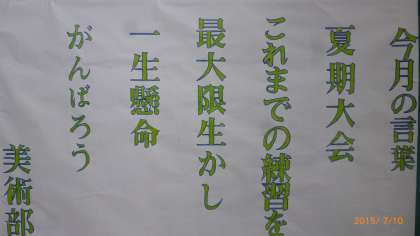 今月の言葉
夏期大会
これまでの練習を
最大限生かし
一生懸命
がんばろう
美術部
2015/ 7/10